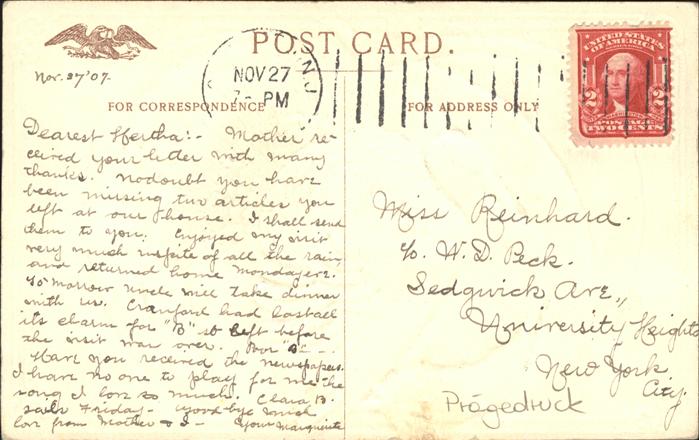 POST CARD.
Nov. 27 '07.
NOV 27
PM
NJ
UNITED STATES
OF AMERICA
2
2
POSTAGE
TWO CENTS
FOR CORRESPONDENCE
FOR ADDRESS ONLY
Dearest Hertha:- Mother re-
ceived your letter with many
thanks. No doubt you have
been missing two articles you
left at our house. I shall send
them to you. Enjoyed my visit
very much inspite of all the rain,
and returned home Monday
To-morrow uncle will take dinner
with us. Cranford had lost all
its charm for "B" so left before
the visit was over. Poor "B" - -
Have you received the newspapers.
I have no one to play for me the
song I love so much. Clara B.
Friday - Good-bye much
love from Mother & I - Your Marguerite
Miss Reinhard.
c/o W. D. Peck.
Sedgwick Ave.,
University Heights
New York
City.
Prägedruck